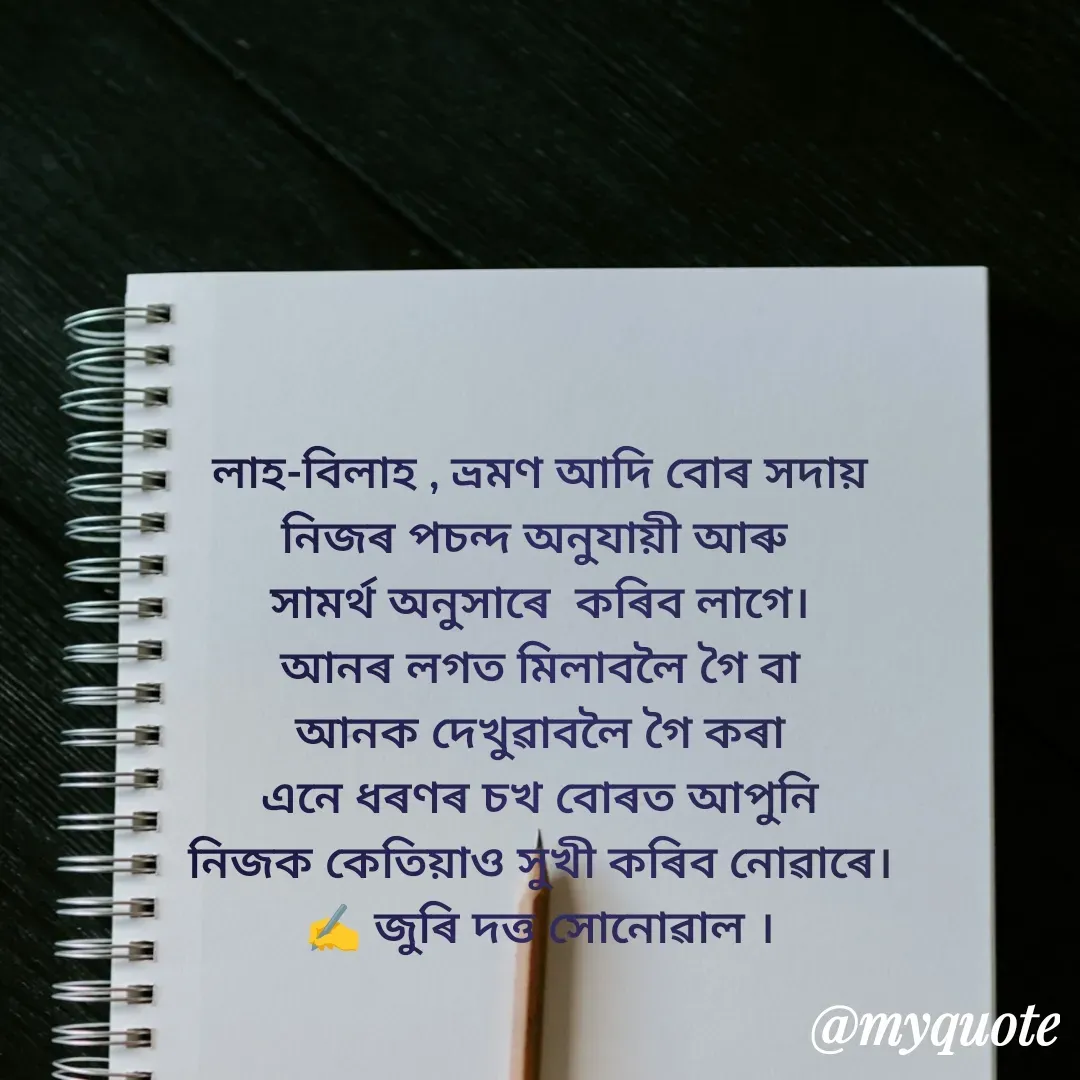 লাহ-বিলাহ , ভ্ৰমণ আদি বোৰ সদায়
নিজৰ পচন্দ অনুযায়ী আৰু
সামৰ্থ অনুসাৰে  কৰিব লাগে।
আনৰ লগত মিলাবলৈ গৈ বা
আনক দেখুৱাবলৈ গৈ কৰা
এনে ধৰণৰ চখ বোৰত আপুনি
নিজক কেতিয়াও সুখী কৰিব নোৱাৰে।
✍️ জুৰি দত্ত সোনোৱাল ।
@myquote